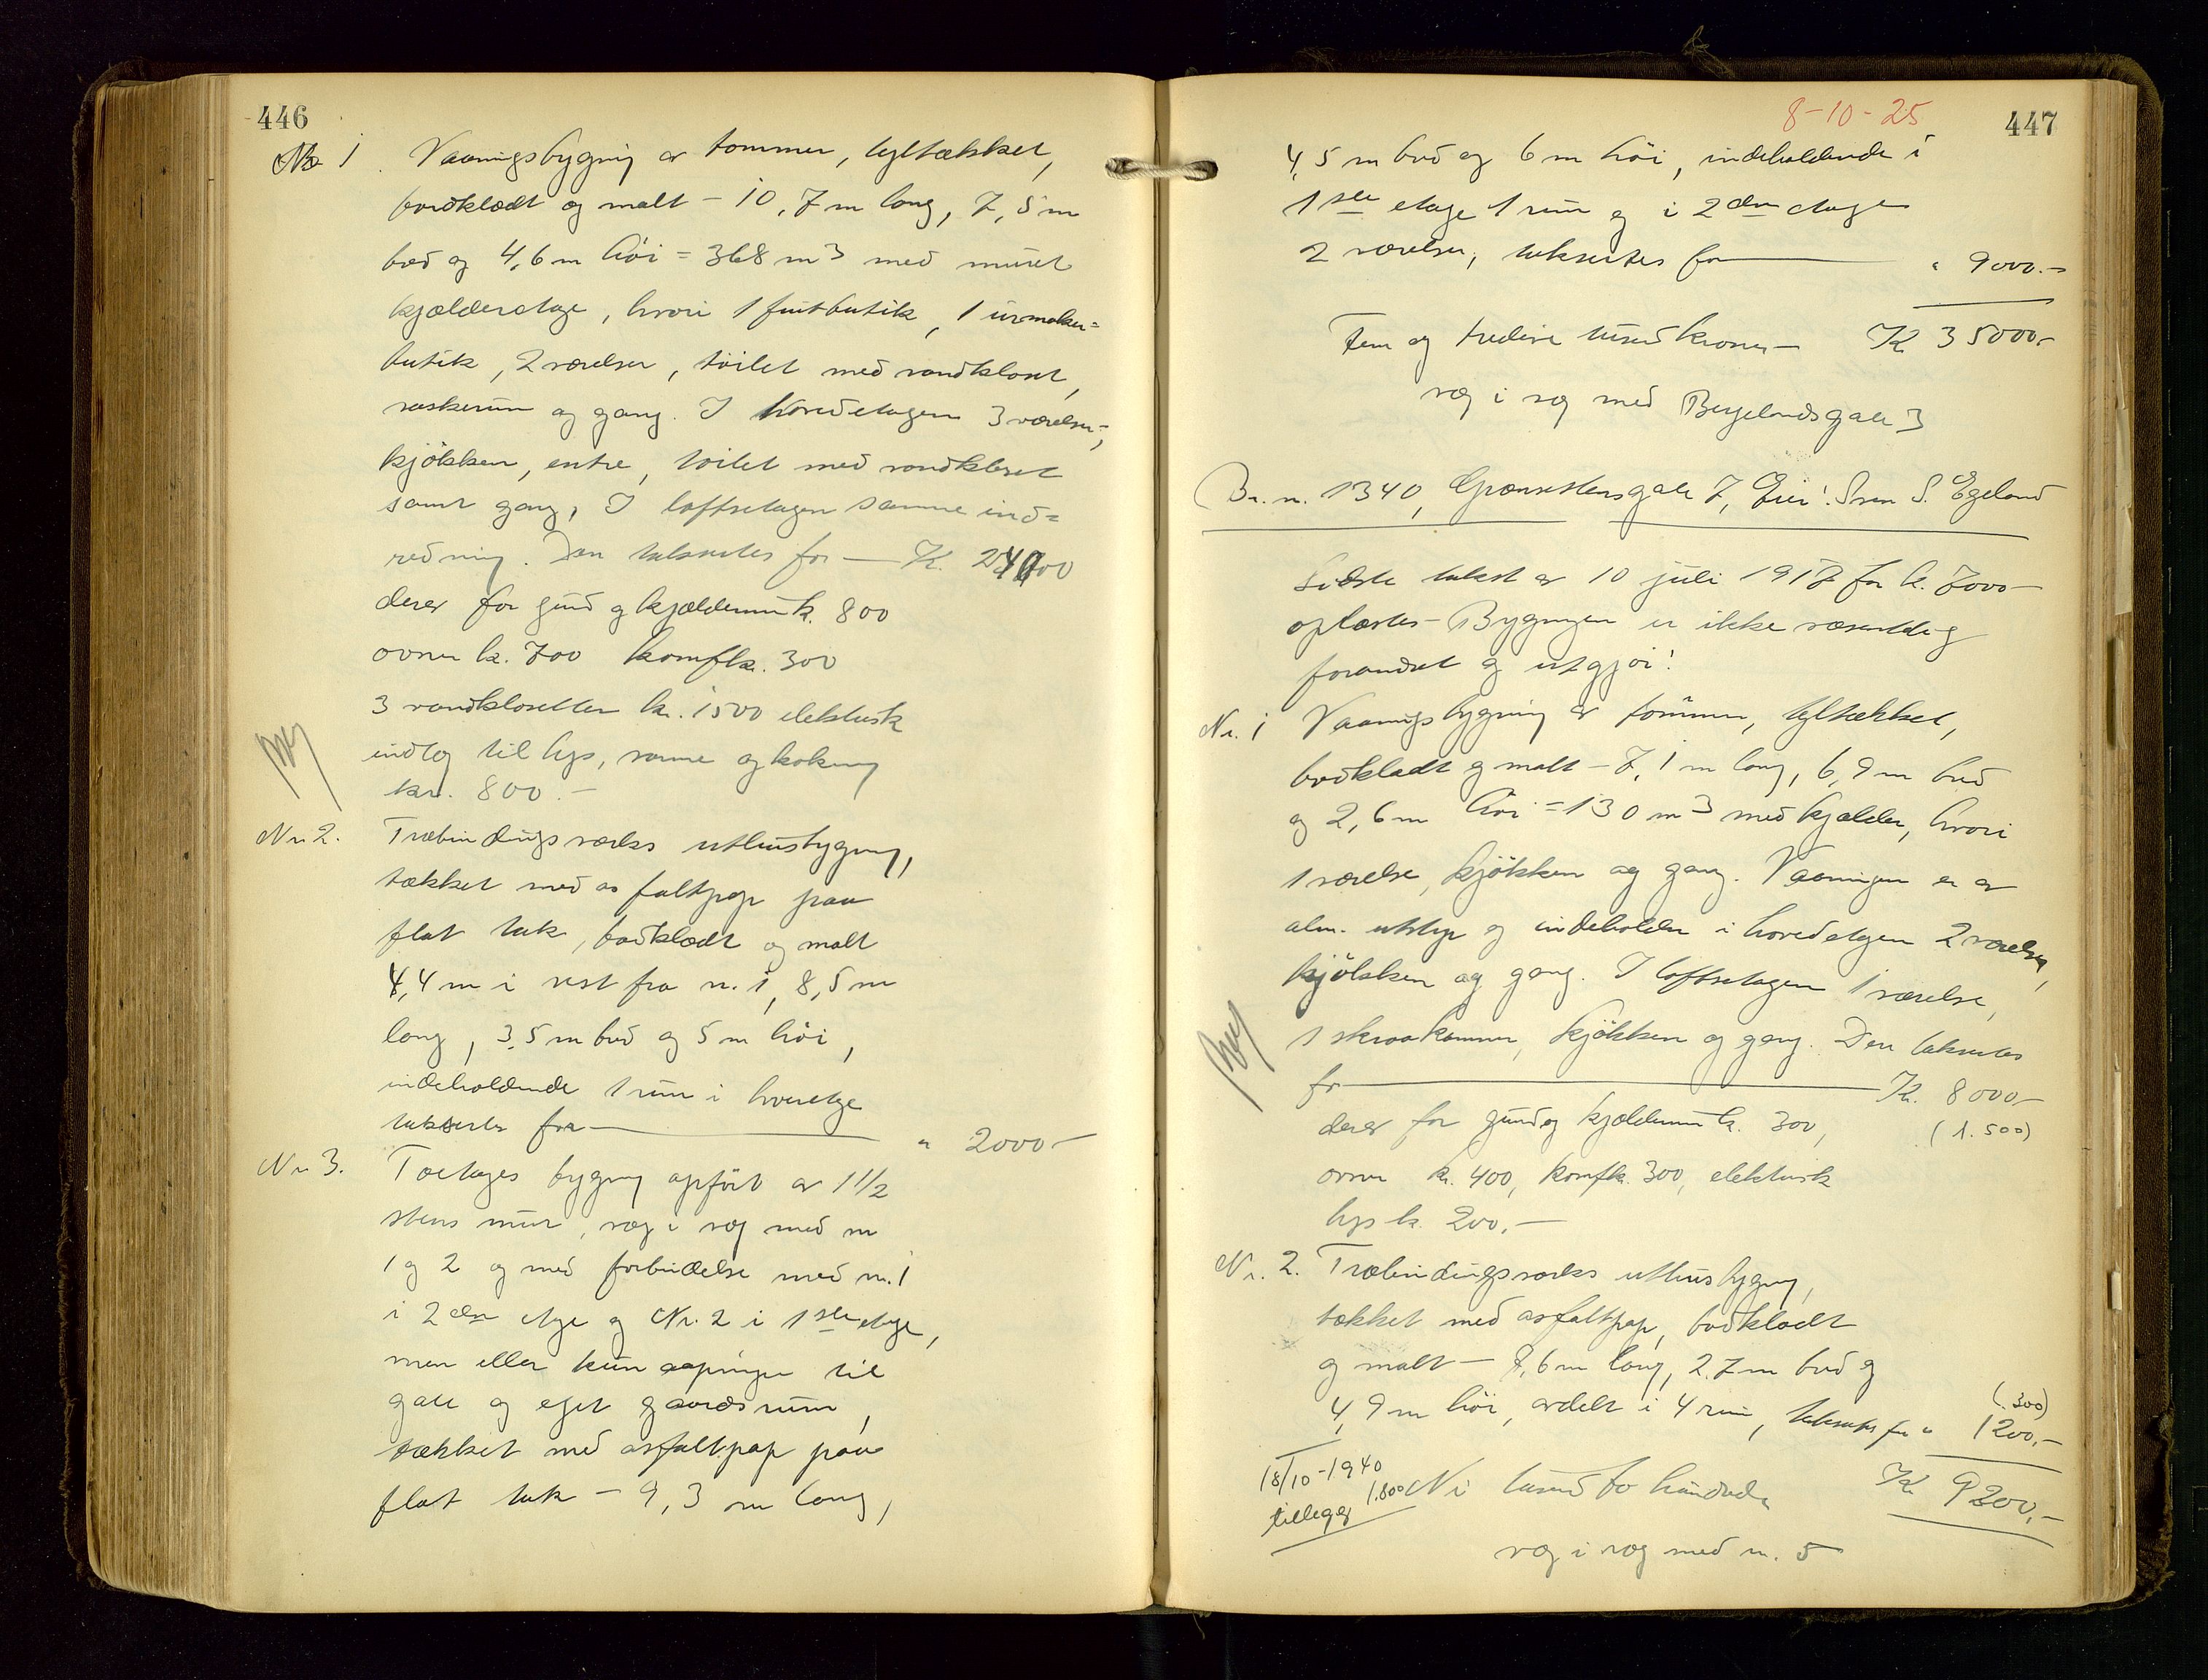 446
No 1. Vaaningsbygning av tømmer, tegltækket,
bordklædt og malt – 10,7 m lang, 7,5 m
bred og 4,6 m høi = 368 m3 med muret
kjælderetage, hvori 1 fruktbutik, 1 urmaker=
butik, 2 værelser, toilet med vandkloset,
vaskerum og gang. I hovedetagen 3 værelser,
kjøkken, entre, toilet med vandkloset
samt gang, I loftsetagen samme ind=
redning. Den takseres for — Kr. 24000
derav for grund og kjældermur kr. 800
ovner kr. 700 komf kr. 300
3 vandklosetter kr. 1500 elektrisk
indlæg til lys, varme og kokning
kr. 800.-
Nr 2. Træbindingsverks uthusbygning,
tækket med asfaltpap paa
flat tak, bordklædt og malt
4,4 m i vest fra nr. 1, 8,5 m
lang, 3,5 m bred og 5 m høi,
indeholdende 1 rum i hver etage
takseres for — " 2000 –
Nr 3. Toetages bygning opført av 1 1/2
stens mur, væg i væg med nr
1 og 2 og med forbindelse med nr. 1
i 2den etage og Nr. 2 i 1ste etage,
men ellers kun aapninger til
gate og eget gaardsrum,
tækket med asfaltpap paa
flat tak – 9,3 m lang,
8-10-25
447
4,5 m bred og 6 m høi, indeholdende i
1ste etage 1 rum og i 2den etage
2 værelser, takseres for — " 9000.–
Fem og tredive tusend kroner – Kr 35000,-
væg i væg med Bergelandsgate 3
Br. nr. 1340, Grænsestensgate 7, Eier: Sven S. Egeland
Sidste takst av 10 juli 1917 for kr. 7000 –
oplæstes – Bygningen er ikke væsentlig
forandret og utgjør:
Nr. 1 Vaaningsbygning av tømmer, tegltækket,
bordklædt og malt – 7,1 m lang, 6,9 m bred
og 2,6 m høi = 130 m3 med kjælder, hvori
1 værelse, kjøkken og gang. Vaaningen er av
alm. utstyr og indeholder i hovedetagen 2 værelser,
kjøkken og gang. I loftsetagen 1 værelse,
1 skraakammer, kjøkken og gang. Den takseres
for — Kr. 8000 –
derav for grund og kjældermur kr. 300, (1.500)
ovner kr. 400, komf kr. 300, elektrisk
lys kr. 200,–
Nr. 2. Træbindingsverks uthusbygning,
tækket med asfaltpap, bordklædt
og malt – 7,6 m lang, 2,7 m bred og
(.300)
4,9 m høi, avdelt i 4 rum, takseres for " 1200,–
18/10-1940
tillegg 1.800
Ni tusend to hundrede Kr 9200,–
væg i væg med nr. 5